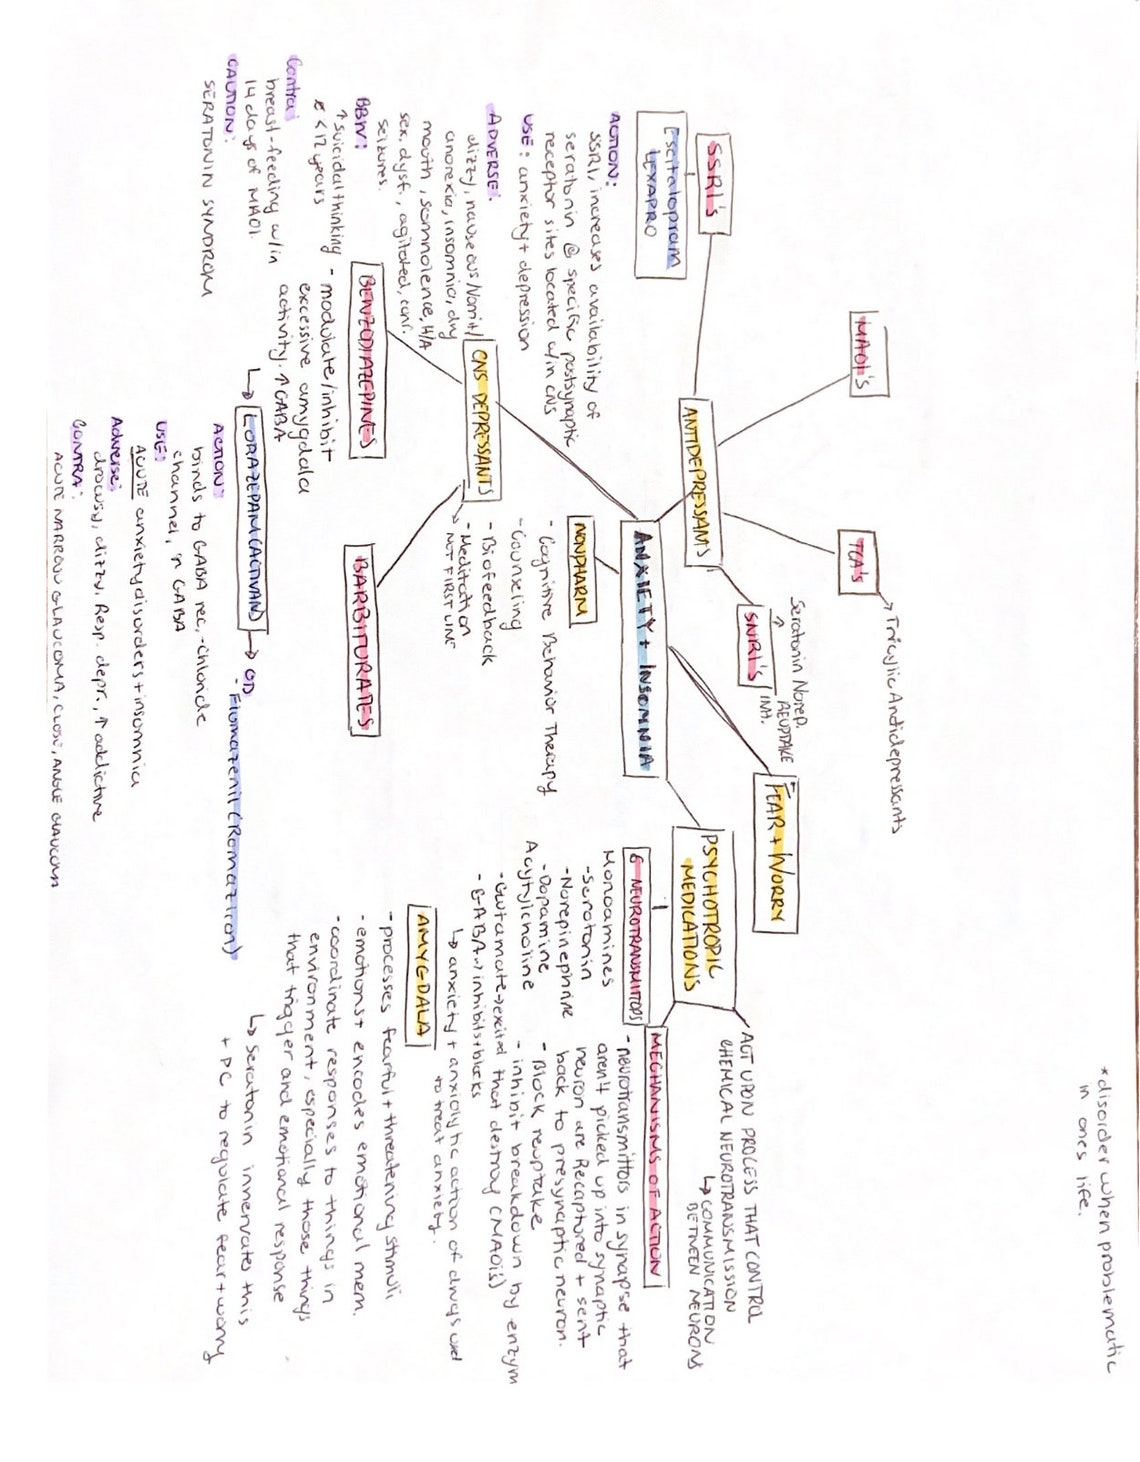 *disorder when problematic
in ones life.
MAOI's
TCA's
↳ Tricyclic Antidepressants
SSRI's
Escitalopram
LEXAPRO
ACTION:
SSRI, increases availability of
seratonin @ specific postsynaptic
receptor sites located w/in CNS
USE: anxiety + depression
ADVERSE:
dizzy, nauseous/Vomit/
anorexia, insomnia, dry
mouth, somnolence, H/A
sex. dysf., agitated, conf.
seizures.
BBW:
↑ suicidal thinking
< 12 years
Contra:
breast-feeding w/in
14 days of MAOI.
CAUTION:
SERATONIN SYNDROM
ANTIDEPRESSANTS
SNRI's
Seratonin Norep.
REUPTAKE
INH.
ANXIETY + INSOMNIA
NONPHARM
- Cognitive Behavior Therapy
- Counseling
- Biofeedback
- Meditation
FEAR + WORRY
CNS DEPRESSANTS
↳ NOT FIRST LINE
BENZODIAZEPINES
- modulate/inhibit
excessive amygdala
activity. ↑ GABA
↳ LORAZEPAM (ACTIVAN)
→ OD
- Flumazenil (Romazicon)
ACTION:
binds to GABA rec, -chloride
channel, ↑ GABA
USE:
ACUTE anxiety disorders + insomnia
Adverse:
drowsy, dizzy, Resp. depr., ↑ addictive
CONTRA:
ACUTE NARROW GLAUCOMA, CLOSE, ANGLE GLAUCOMA
BARBITURATES
PSYCHOTROPIC
MEDICATIONS
ACT UPON PROCESS THAT CONTROL
CHEMICAL NEUROTRANSMISSION
↳ COMMUNICATION
BETWEEN NEURONS
6 NEUROTRANSMITTORS
Monoamines
- Serotonin
- Norepinephrine
- Dopamine
Acytylcholine
- Glutamate → excited
- GABA → inhibits + blocks
↳ anxiety + anxiolytic action of drugs used
to treat anxiety.
MECHANISMS OF ACTION
- neurotransmittors in synapse that
aren't picked up into synaptic
neuron are Recaptured + sent
back to presynaptic neuron.
- Block reuptake
- inhibit breakdown by enzym
that destroy (MAOI's)
AMYGDALA
- processes fearful + threatening stimuli
- emotions + encodes emotional mem.
- coordinate responses to things in
environment, especially those things
that trigger and emotional response
↳ Seratonin innervates this
+ PC to regulate fear + worry